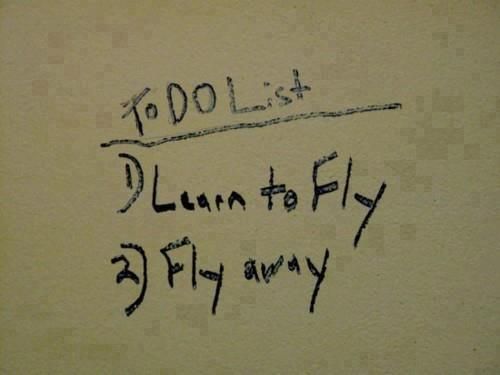 ToDO List
1) Learn to Fly
2) Fly away